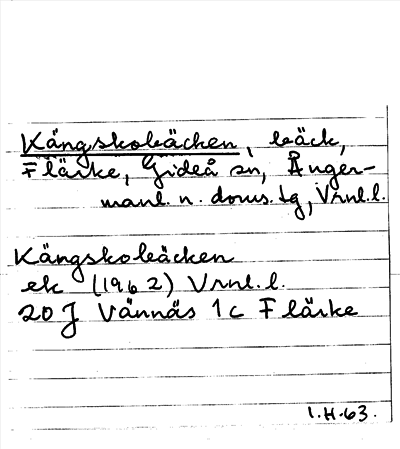 Kängskobäcken, bäck,
Flärke, Gideå sn, Ånger-
manl. n. doms.tg, Vrnl.l.
Kängskobäcken
ek (1962) Vrnl.l.
20 J Vännäs 1c Flärke
I.H.63.